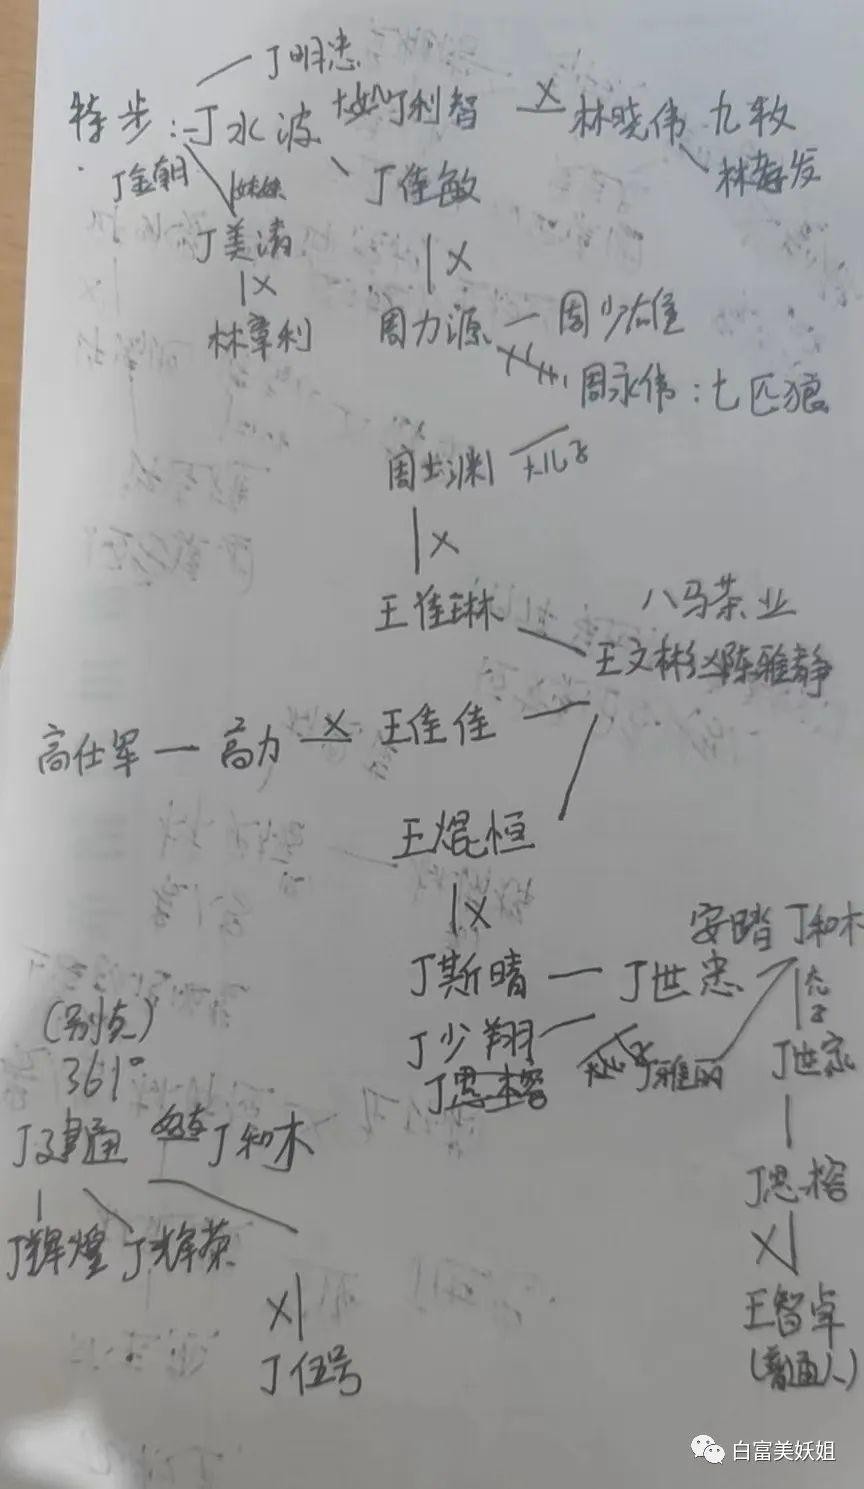 丁明忠
特步：丁水波 大女儿丁利智 X 林晓伟 九牧
丁金朝 妹妹 丁佳敏 林孝发
丁美清 | X
| X 周力源 — 周少雄
林章利 周永伟：七匹狼
周士渊 大儿子
| X
王佳琳 八马茶业
王文彬 陈雅静
高仕军 — 高力 X 王佳佳
王焜恒
| X 安踏 丁和木
丁斯晴 — 丁世忠
(别克) 丁少翔 丁世家
361° 丁思榕 丁雅丽
丁建通 丁和木 丁思榕
丁辉煌 丁辉荣 X|
X| 王智卓
丁伍号 (普通人)
白富美妖姐